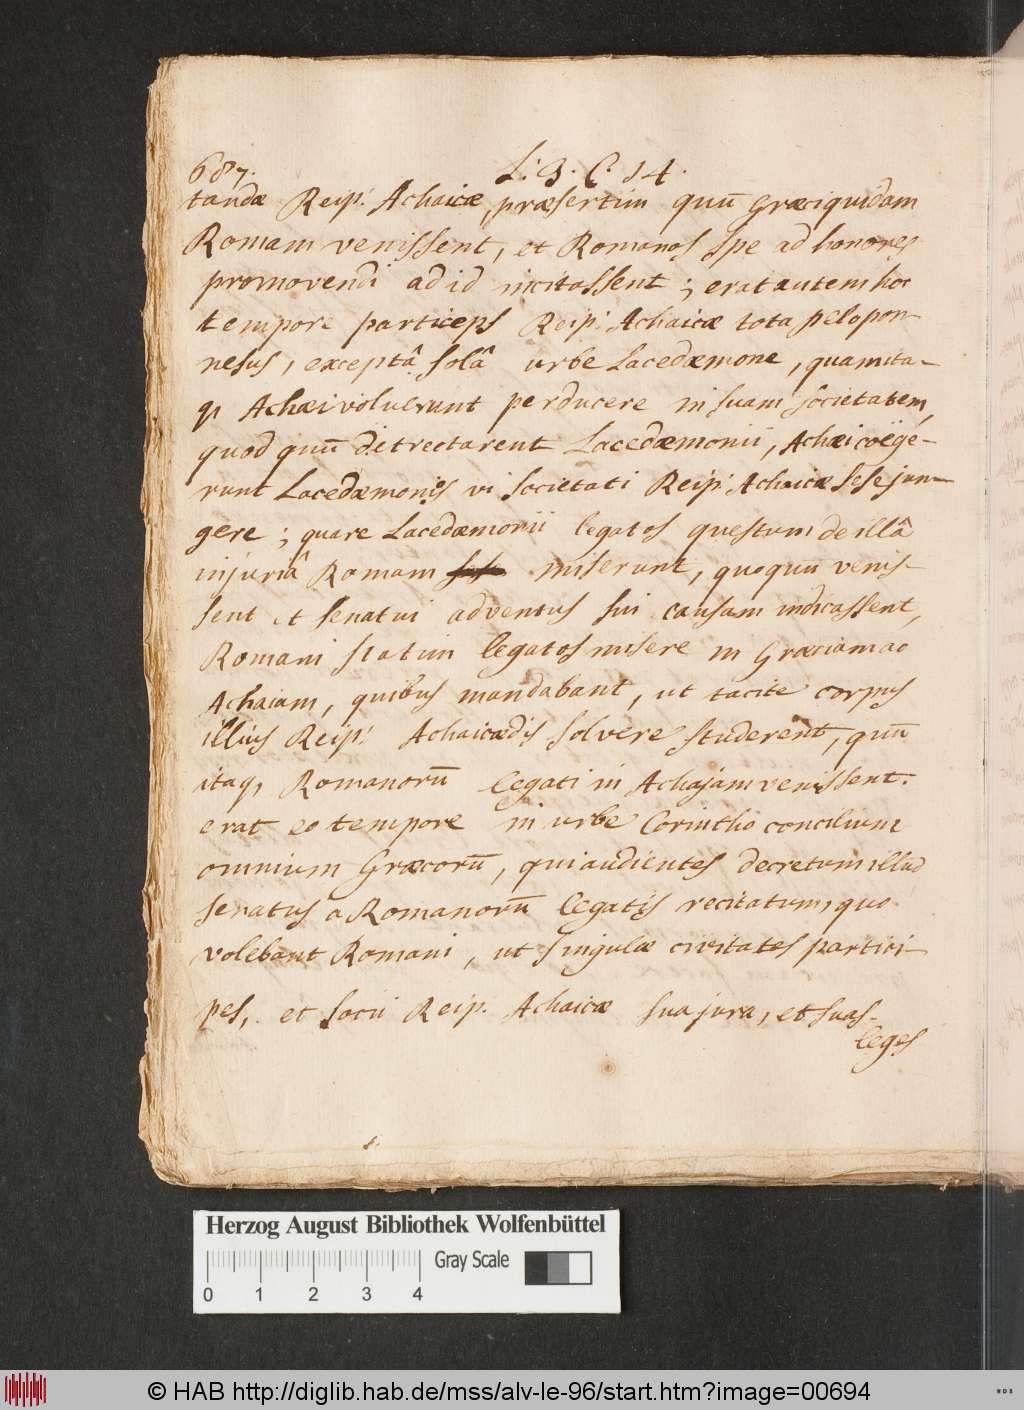 687.
L: 3. C: 14.
tandæ Reip: Achaicæ, præsertim quū Græci quidam
Romam venissent, et Romanos spe ad honores
promovendi ad id incitassent; erat autem hoc
tempore particeps Reip: Achaicæ tota pelopon-
nesus, exceptâ solâ urbe Lacedæmone, quam ita-
q, Achæi voluerunt perducere in suam societatem,
quod quū detrectarent Lacedæmonii, Achæi coëge-
runt Lacedæmonios vi societati Reip: Achaicæ sese jun-
gere; quare Lacedæmonii legatos questum de illâ
injuriâ Romam miserunt, quo quū venis-
sent et senatui adventus sui causam indicassent,
Romani statim legatos misere in Græciam ac
Achaiam, quibus mandabant, ut tacite corpus
illius Reip: Achaicæ dissolvere studerent, quū
itaq, Romanorū legati in Achajam venissent.
erat eo tempore in urbe Corintho concilium
omnium Græcorū, qui audientes decretum illud
senatus a Romanorū legatis recitatum, quo
volebant Romani, ut singulæ civitates partici-
pes, et socii Reip. Achaicæ sua jura, et suas-
leges
Herzog August Bibliothek Wolfenbüttel
Gray Scale
0 1 2 3 4
© HAB http://diglib.hab.de/mss/alv-le-96/start.htm?image=00694